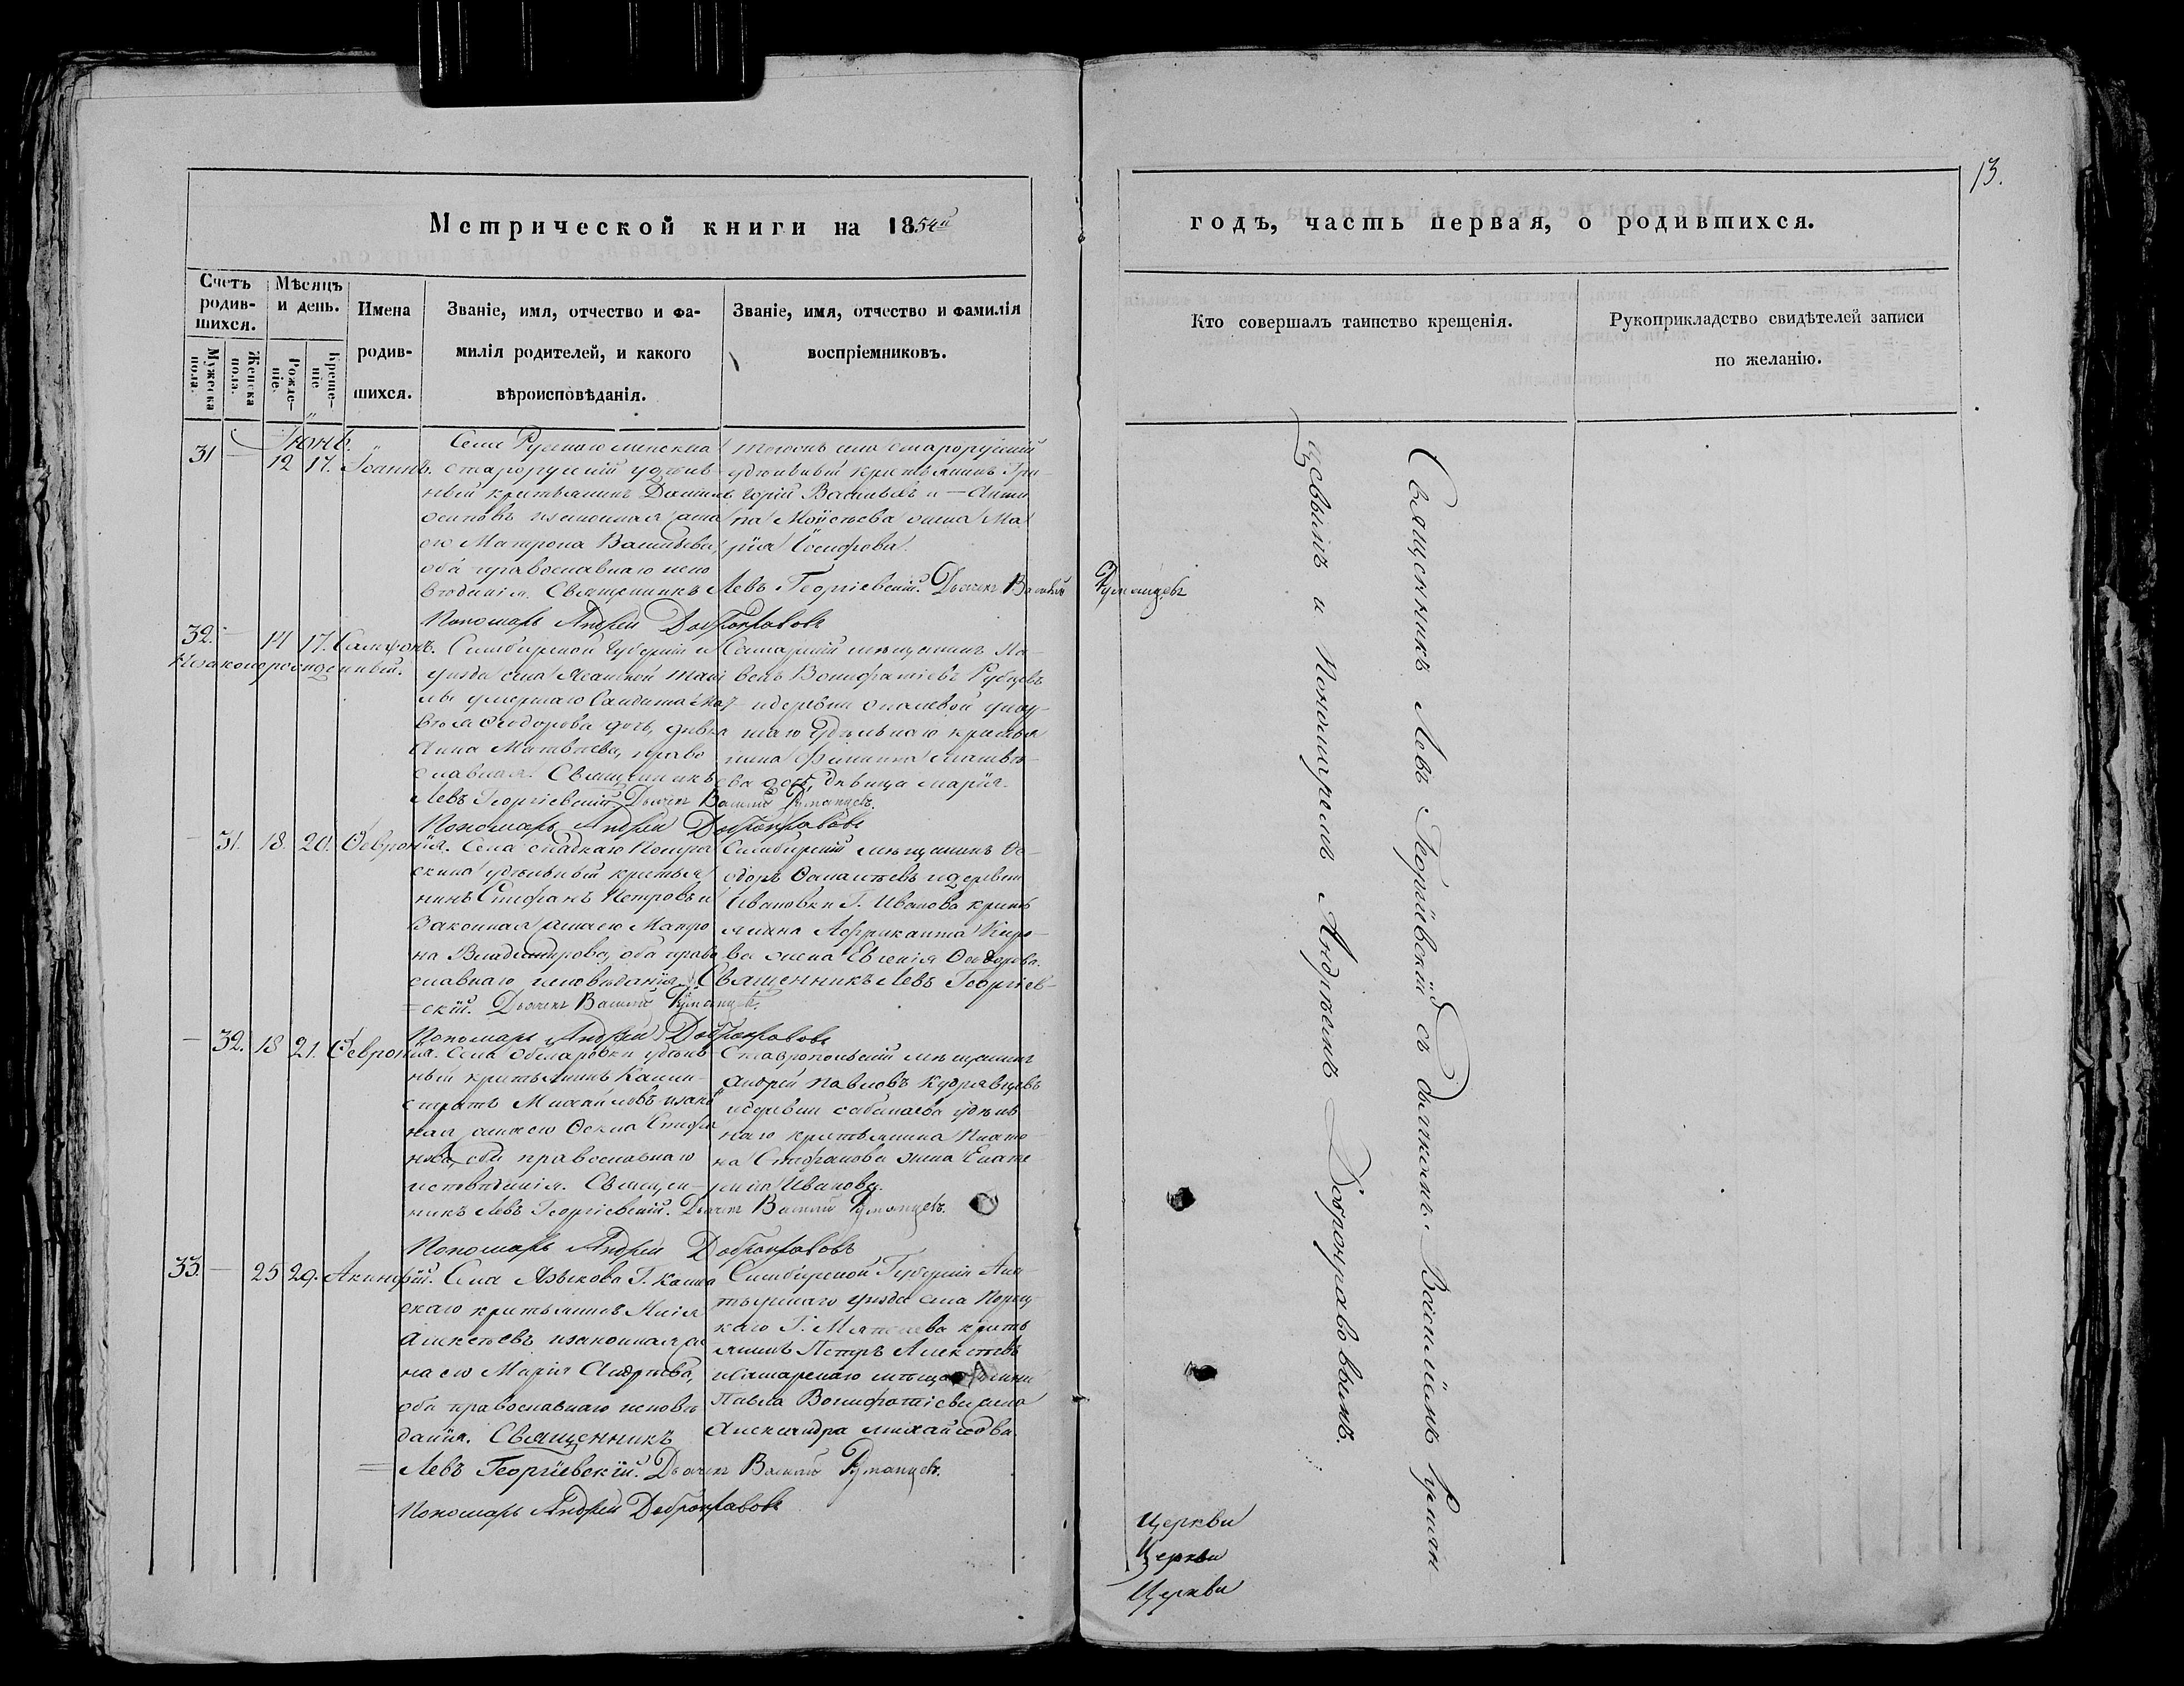 Метрической книги на 1854й
Счетъ родившихся.
Мужеска пола.
Женска пола.
Мѣсяцъ и день.
Рожденіе.
Крещеніе
Имена родившихся.
Званіе, имя, отчество и фа-
милія родителей, и какого
вѣроисповѣданія.
Званіе, имя, отчество и фамилія
воспріемниковъ.
Іюнь.
31 — 12 17. Іоаннъ.
Села
Старорускій удѣль-
ный крестьянинъ
Осиповъ и законная жена
его Матрона Васильева,
оба православнаго испо
вѣданія. Священникъ Левъ Георгіевскій. Дьячекъ Василій Румянцевъ
Пономарь Андрей Добронравовъ
тогожъ села старорускій
удѣльный крестьянинъ Гри
горій Васильевъ и —
Моѵсеева жена Ма
рія Іосифова.
32. — 14 17. Сампсонъ.
Незаконорожденный.
Симбирской Губерніи
уѣзда села
умершаго
Ѳеодорова дочь, дѣвка
Анна Матвѣева, право
славная. Священникъ
Левъ Георгіевскій. Дьячекъ Василій Румянцевъ.
Пономарь Андрей Добронравовъ
Самарскій мѣщанинъ Па-
велъ Вонифатіевъ Рубцовъ
и деревни
удѣльнаго крестья
нина Филиппа Матвѣ-
ева дочь, дѣвица Марія.
— 31. 18. 20. Ѳевронія.
Села
удѣльный крестья
нинъ Стефанъ Петровъ и
законная жена его Матро
на Владимирова, оба право
славнаго исповѣданія. Священникъ Левъ Георгіев-
скій. Дьячекъ Василій Румянцевъ.
Пономарь Андрей Добронравовъ
Симбирскій мѣщанинъ Ѳе-
одоръ и деревни
Ивановки Г. Иванова кресть
янина Африканта Киро-
ва жена Евгенія Ѳеодорова.
— 32. 18 21. Ѳевронія.
Села удѣль-
ный крестьянинъ Кали-
стратъ Михайловъ и закон
ная жена его Стефа
нова, оба православнаго
исповѣданія. Священ-
никъ Левъ Георгіевскій. Дьячекъ Василій Румянцевъ.
Пономарь Андрей Добронравовъ
Ставропольскій мѣщанинъ
Андрей Павловъ Кудрявцевъ
и деревни удѣль
наго крестьянина Плато
на Стефанова жена Екате
рина Иванова.
33. — 25 29. Акинфій.
Села Языкова Г.
скаго крестьянинъ
Алексѣевъ и законная же
на его Марія Андреева,
оба православнаго исповѣ
данія. Священникъ
Левъ Георгіевскій. Дьячекъ Василій Румянцевъ.
Пономарь Андрей Добронравовъ
Симбирской Губерніи Ала
тырскаго уѣзда села Порец
каго Г. кресть
янинъ Петръ Алексѣевъ
и Самарскаго мѣщанина
Павла Вонифатіева жена
Александра Михайлова.
13.
годъ, часть первая, о родившихся.
Кто совершалъ таинство крещенія.
Рукоприкладство свидѣтелей записи
по желанію.
Священникъ Левъ Георгіевскій съ дьячкомъ Василіемъ Румян
цевымъ и Пономаремъ Андреемъ Добронравовымъ.
Церкви
Церкви
Церкви